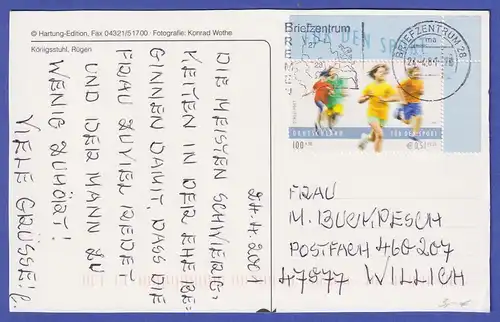 © Hartung-Edition, Fax 04321/51700. Fotografie: Konrad Wothe
Königsstuhl, Rügen
24.4.2001
DIE MEISTEN SCHWIERIG-
KEITEN IN DER EHE BE-
GINNEN DAMIT, DASS DIE
FRAU ZUVIEL REDET
UND DER MANN ZU
WENIG ZUHÖRT!
VIELE GRÜSSE!
Briefzentrum
BREMEN
BRIEFZENTRUM 28
FÜR DEN SPORT
DEUTSCHLAND
FÜR DEN SPORT
100
€ 0,51
FRAU
M. BUCK, PESCH
POSTFACH 460207
47877 WILLICH